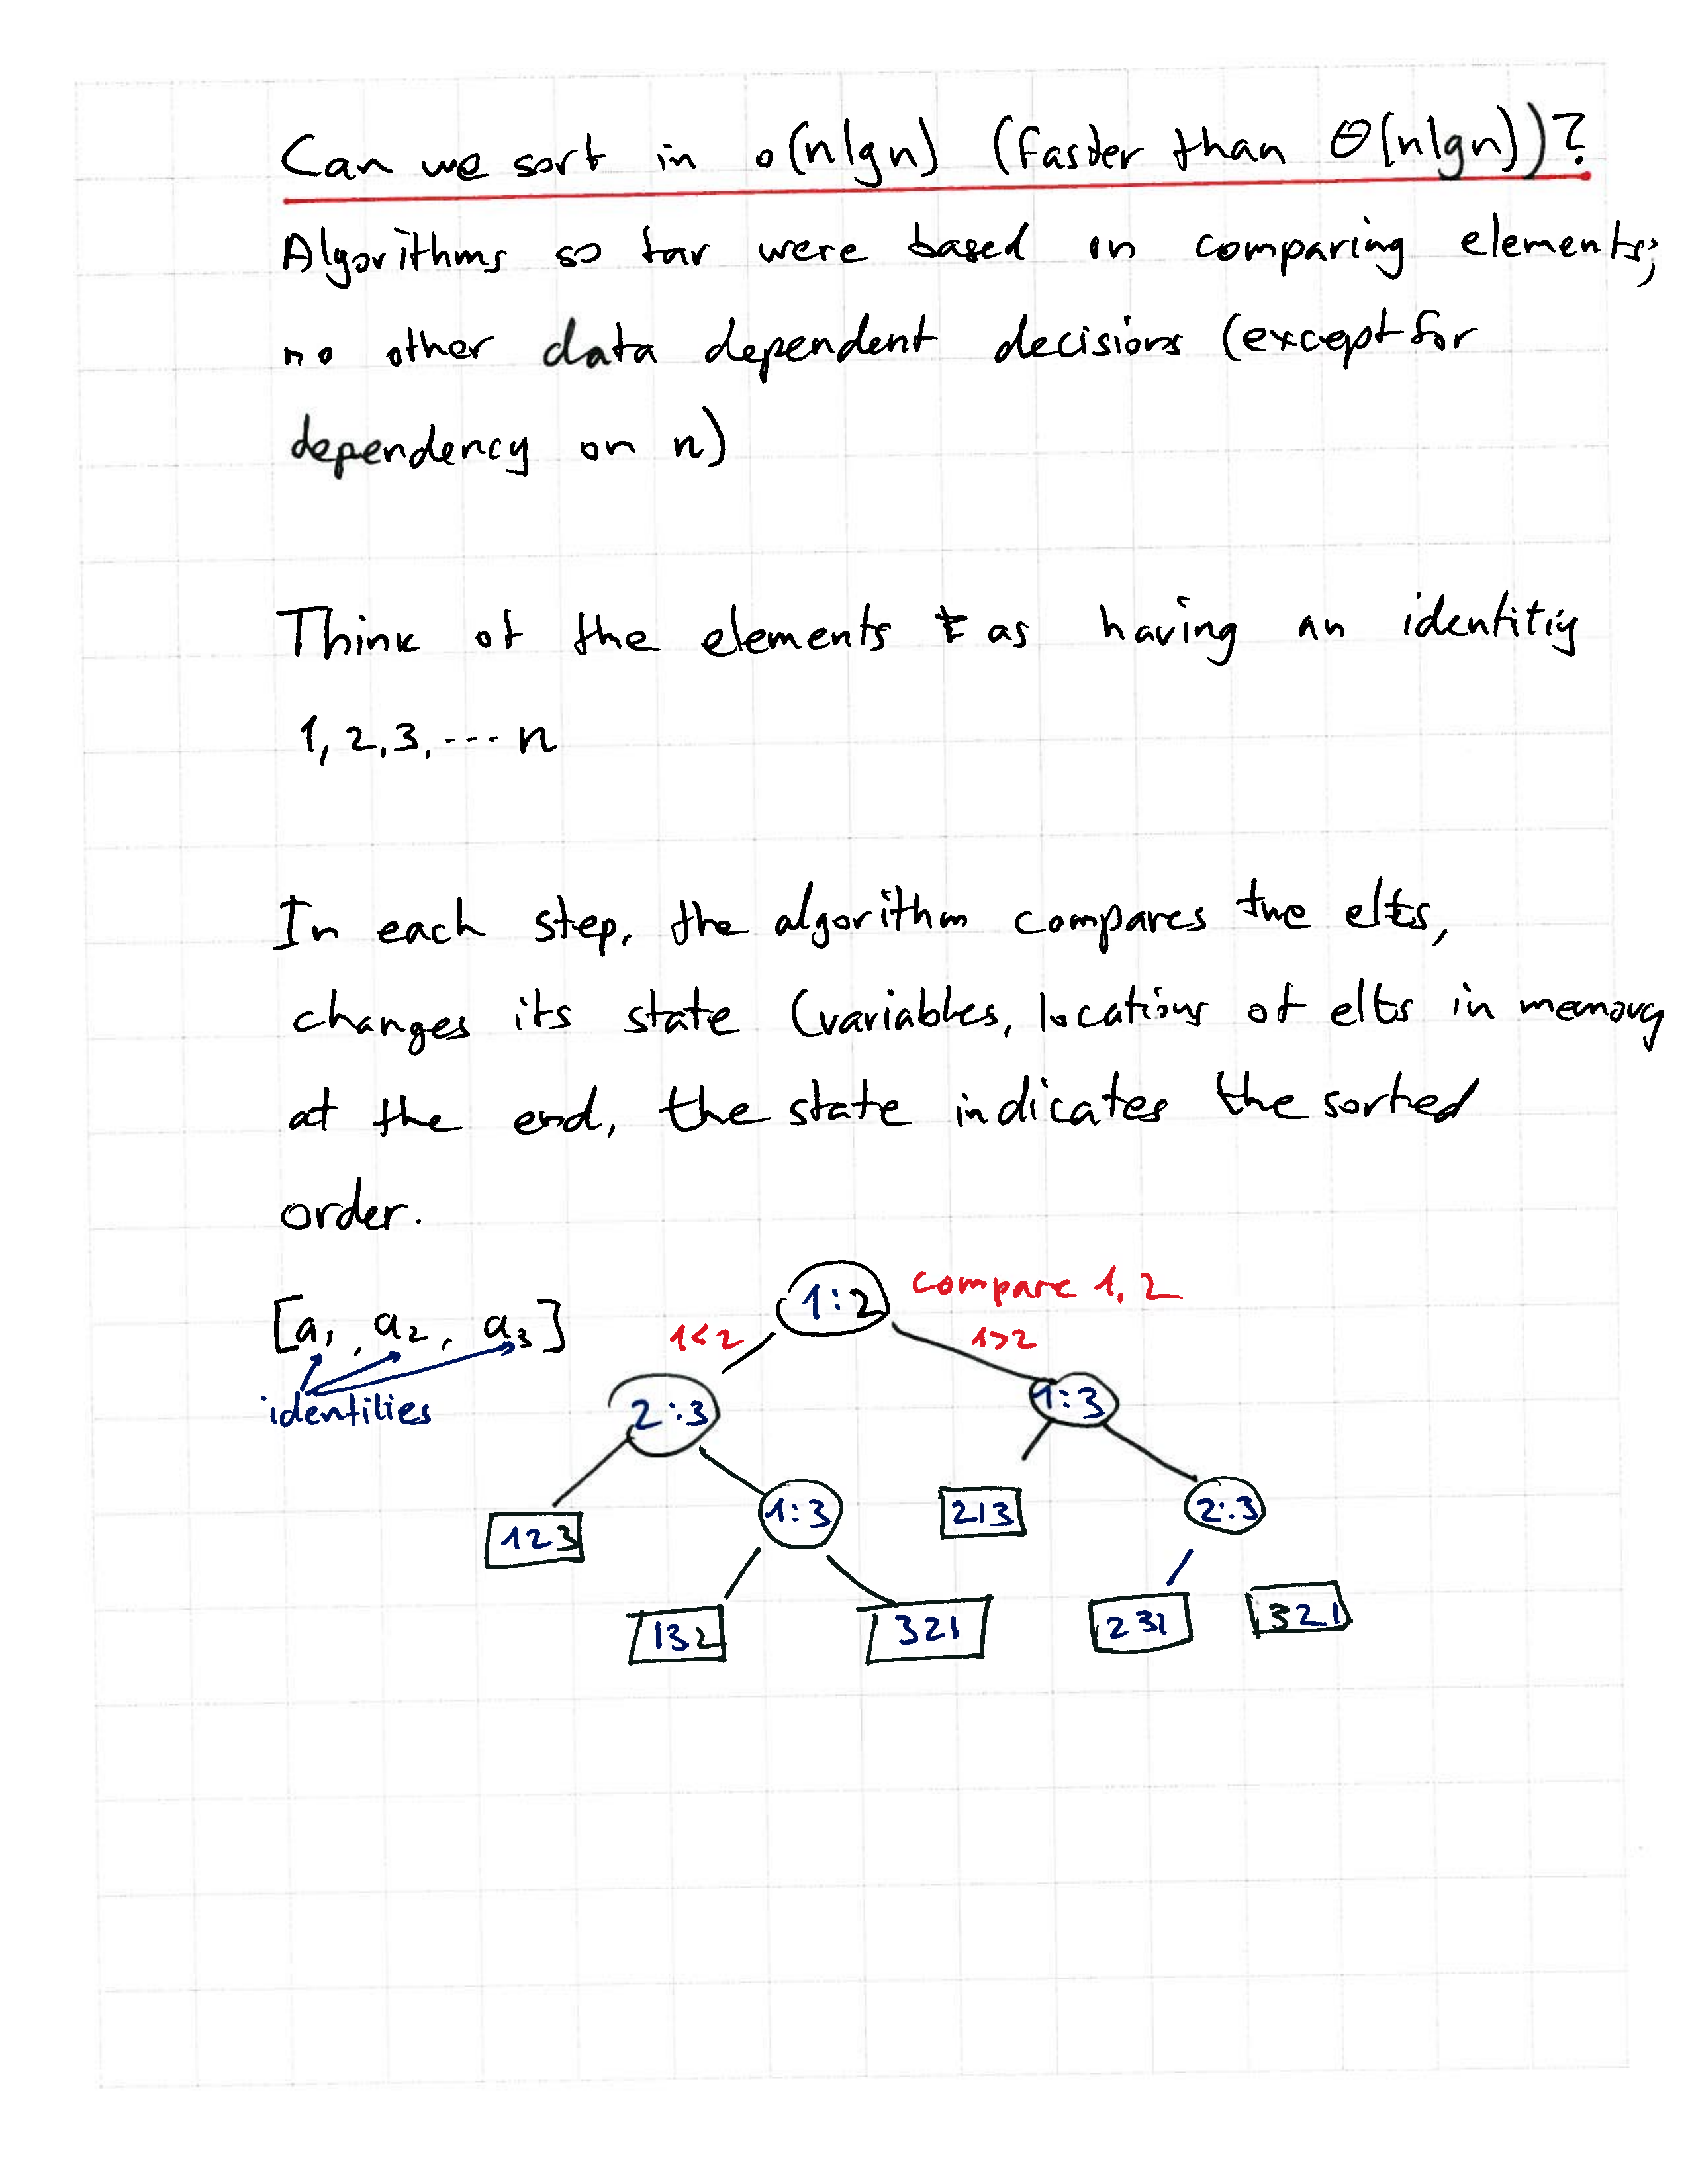 Can we sort in o(nlgn) (faster than Θ(nlgn))?
Algorithms so far were based on comparing elements;
no other data dependent decisions (except for
dependency on n)
Think of the elements as having an identitiy
1, 2, 3, ---- n
In each step, the algorithm compares two elts,
changes its state (variables, locations of elts in memory
at the end, the state indicates the sorted
order.
[a1, a2, a3]
identities
1:2
compare 1, 2
1<2
1>2
2:3
1:3
123
1:3
213
2:3
132
321
231
321